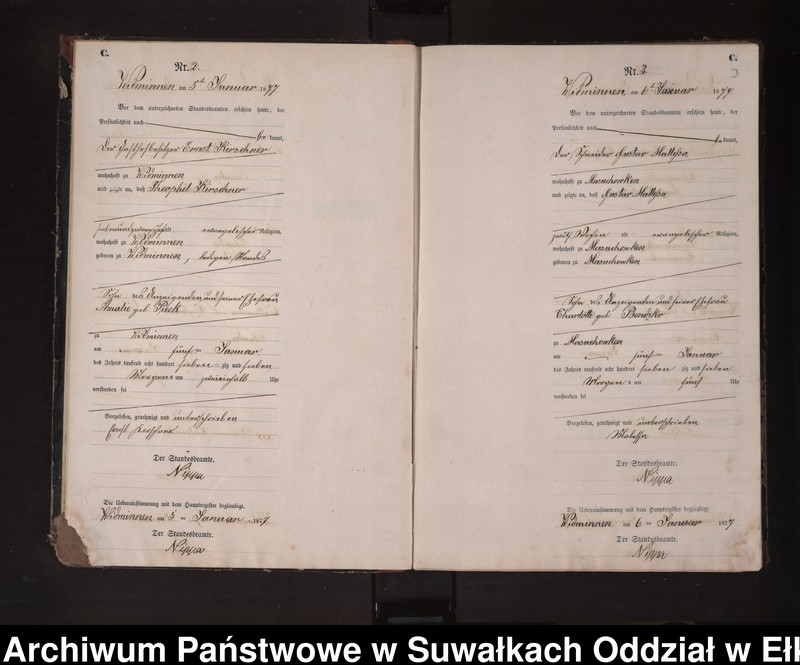 C.
Nr. 2.
Widminnen am 5ten Januar 1877
Vor dem unterzeichneten Standesbeamten erschien heute, der
Persönlichkeit nach
bekannt,
Der Gasthofbesitzer Ernst Kerschner
wohnhaft zu Widminnen
und zeigte an, daß Theophil Kerschner
evangelischer Religion,
wohnhaft zu Widminnen
geboren zu Widminnen, ledigen Standes
Sohn des Anzeigenden und seiner Ehefrau
Amalie geb. Pieck
zu Widminnen
am fünften Januar
des Jahres tausend acht hundert sieben zig und sieben
Morgens um Uhr
verstorben sei
Vorgelesen, genehmigt und unterschrieben
Der Standesbeamte.
Nippa
Die Uebereinstimmung mit dem Hauptregister beglaubigt.
Widminnen am 5ten Januar 1877
Der Standesbeamte.
Nippa
C.
3
Nr. 3
Widminnen am 6ten Januar 1877
Vor dem unterzeichneten Standesbeamten erschien heute, der
Persönlichkeit nach
bekannt,
Der Schneider Gustav Mallessa
wohnhaft zu Masuchowken
und zeigte an, daß Gustav Mallessa
zwölf Wochen alt evangelischer Religion,
wohnhaft zu Masuchowken
geboren zu Masuchowken
Sohn des Anzeigenden und seiner Ehefrau
Charlotte geb.
zu Masuchowken
am fünften Januar
des Jahres tausend acht hundert sieben zig und sieben
Morgens um fünf Uhr
verstorben sei
Vorgelesen, genehmigt und unterschrieben
Der Standesbeamte.
Nippa
Die Uebereinstimmung mit dem Hauptregister beglaubigt.
Widminnen am 6ten Januar 1877
Der Standesbeamte.
Nippa
Archiwum Państwowe w Suwałkach Oddział w Ełk